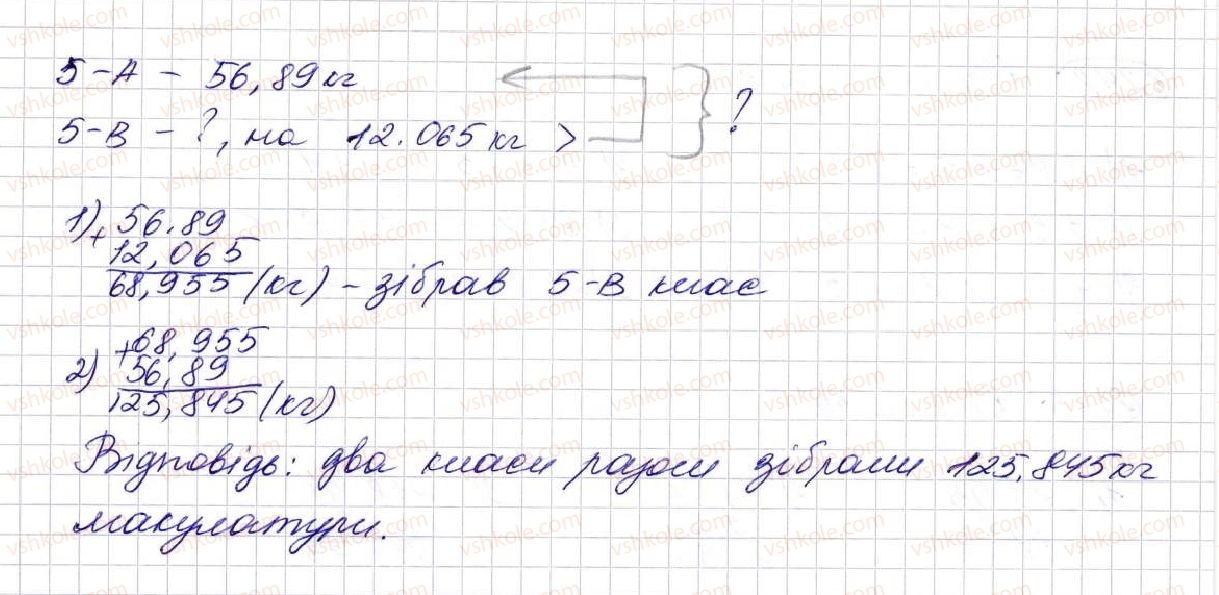 5-А - 56,89 кг
5-В - ?, на 12.065 кг >
?
1) + 56.89
12,065
68,955 (кг) - зібрав 5-В клас
2) + 68,955
56,89
125,845 (кг)
Відповідь: два класи разом зібрали 125,845 кг
макулатури.